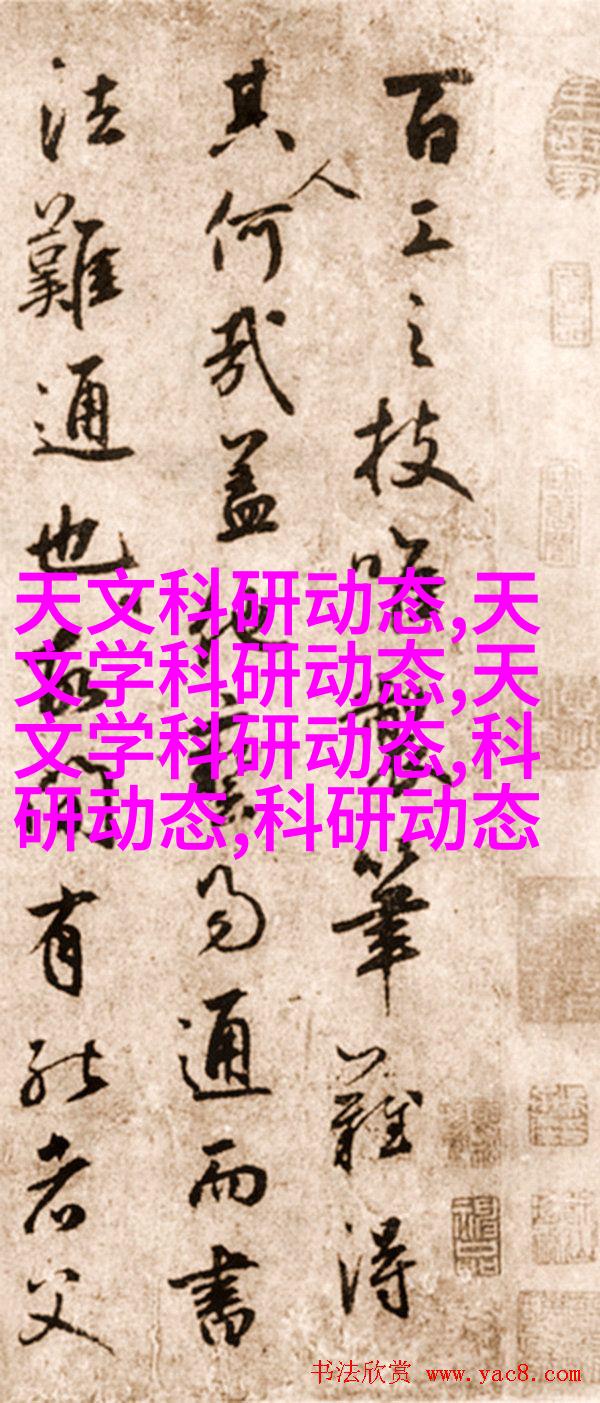 百工之技唯筆難得
其人何哉蓋他易通而書
法難通也有能者父
天文科研动态,天
文学科研动态,天
文学科研动态,科
研动态,科研动态
书法欣赏 www.yac8.com